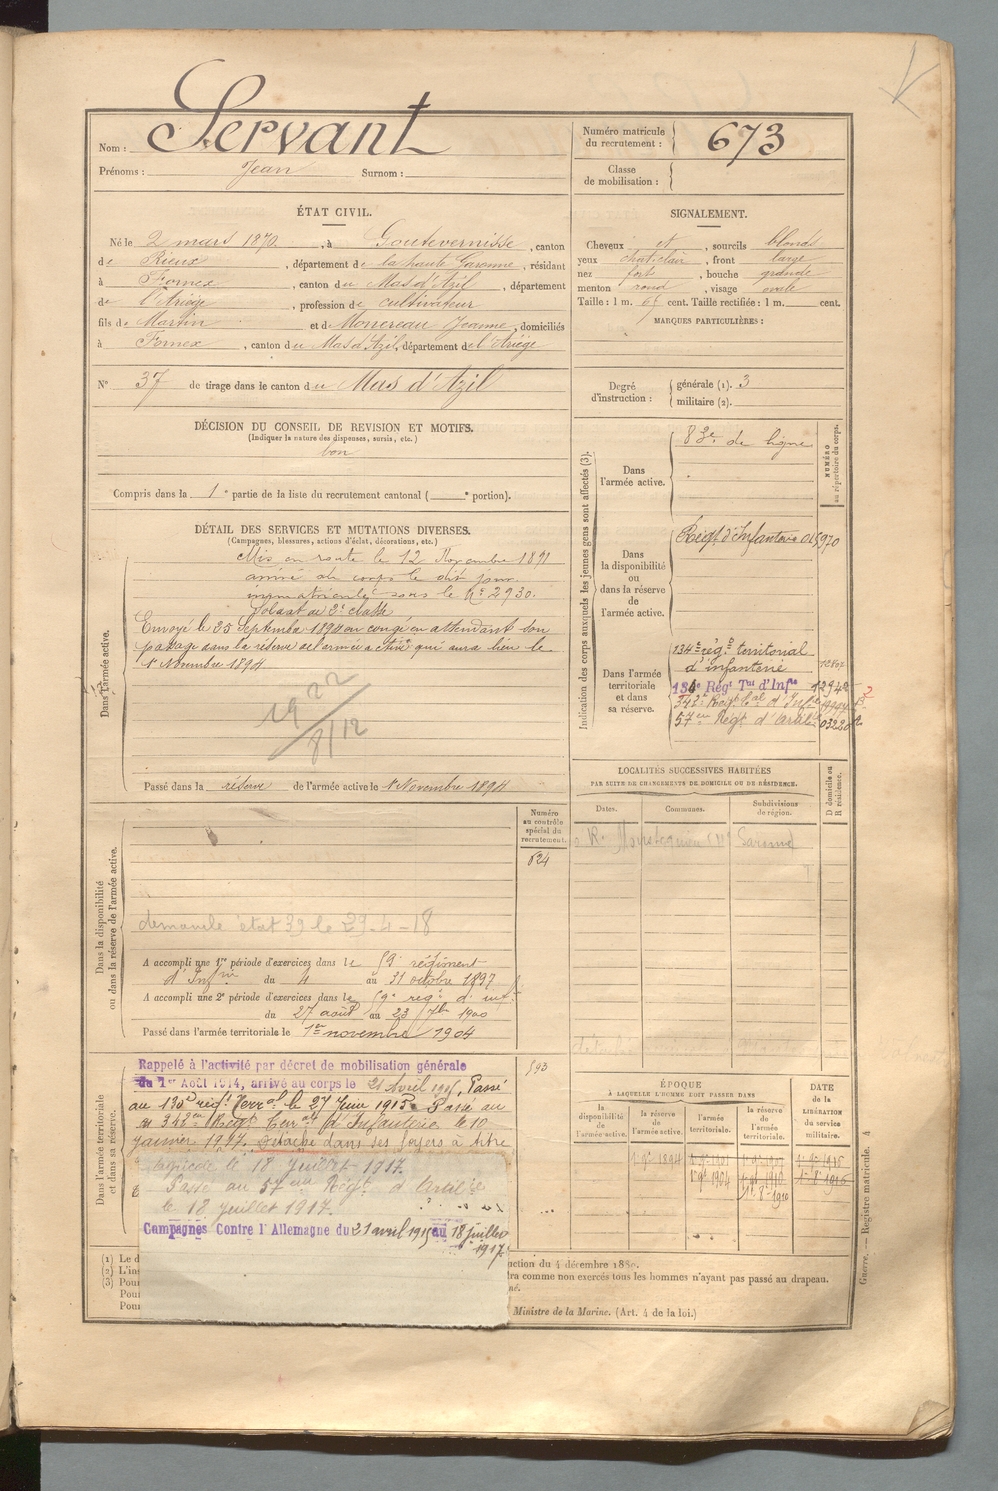 Nom : Servant
Prénoms : Jean Surnom :
Numéro matricule du recrutement : 673
Classe de mobilisation :
ÉTAT CIVIL.
Né le 2 mars 1870, à Goutevernisse, canton
de Rieux, département de la haute Garonne, résidant
à Fornex, canton du Mas d'Azil, département
de l'Ariège, profession de cultivateur
fils de Martin et de Monereau Jeanne, domiciliés
à Fornex, canton du Mas d'Azil, département de l'Ariège
N° 37 de tirage dans le canton du Mas d'Azil
SIGNALEMENT.
Cheveux et, sourcils blonds
yeux, front large
nez fort, bouche grande
menton rond, visage ovale
Taille : 1 m. 67 cent. Taille rectifiée : 1 m. cent.
MARQUES PARTICULIÈRES :
Degré d'instruction : générale (1). 3
militaire (2).
DÉCISION DU CONSEIL DE REVISION ET MOTIFS.
(Indiquer la nature des dispenses, sursis, etc.)
bon
Compris dans la 1e partie de la liste du recrutement cantonal ( e portion).
DÉTAIL DES SERVICES ET MUTATIONS DIVERSES.
(Campagnes, blessures, actions d'éclat, décorations, etc.)
Dans l'armée active.
Mis en route le 12 Novembre 1891
arrivé au corps le dit jour.
immatriculé sous le n° 2930.
Soldat de 2e classe
Envoyé le 25 Septembre 1894 en congé en attendant son
passage dans la réserve de l'armée active qui aura lieu le
1er Novembre 1894
1922
8/12
Passé dans la réserve de l'armée active le 1er Novembre 1894
Indication des corps auxquels les jeunes gens sont affectés (3).
NUMÉRO
au répertoire du corps.
Dans l'armée active.
83e de ligne
Dans la disponibilité ou dans la réserve de l'armée active.
Régt d'Infanterie 015970
Dans l'armée territoriale et dans sa réserve.
134e rég. territorial
d'infanterie
134e Régt Tal d'Infie 12942
342e Régt Tal d'Infie
57e Régt d'Artie 03220
LOCALITÉS SUCCESSIVES HABITÉES
PAR SUITE DE CHANGEMENTS DE DOMICILE OU DE RÉSIDENCE.
Dates. Communes. Subdivisions de région.
D domicile ou
R résidence.
R. Montesquieu
Dans la disponibilité
ou dans la réserve de l'armée active.
Numéro au contrôle spécial du recrutement.
624
demande état 39 le 29-4-18
A accompli une 1re période d'exercices dans le 59e régiment
d'Infrie du 4 au 31 octobre 1897
A accompli une 2e période d'exercices dans le 59e régt d'inf.
du 27 août au 23 7bre 1900
Passé dans l'armée territoriale le 1er novembre 1904
Dans l'armée territoriale
et dans sa réserve.
593
Rappelé à l'activité par décret de mobilisation générale
du 1er Août 1914, arrivé au corps le 21 Avril 1915, Passé
au 135e régt Terral le 27 Juin 1915. Passé au
342e Régt Terral d'Infanterie le 10
janvier 1917. Détaché dans ses foyers à titre
agricole le 18 Juillet 1917.
Passé au 57e Régt d'Artie
le 18 juillet 1917.
Campagnes Contre l'Allemagne du 21 avril 1915 au 18 juillet
1917.
ÉPOQUE
À LAQUELLE L'HOMME DOIT PASSER DANS
la disponibilité de l'armée active. la réserve de l'armée active. l'armée territoriale. la réserve de l'armée territoriale.
DATE de la LIBÉRATION du service militaire.
1er 9bre 1894
1er 9bre 1904
(1) Le d
(2) L'ins
(3) Pour
Pour
Pour
uction du 4 décembre 1889.
ra comme non exercés tous les hommes n'ayant pas passé au drapeau.
né.
Ministre de la Marine. (Art. 4 de la loi.)
Guerre. — Registre matricule. 4